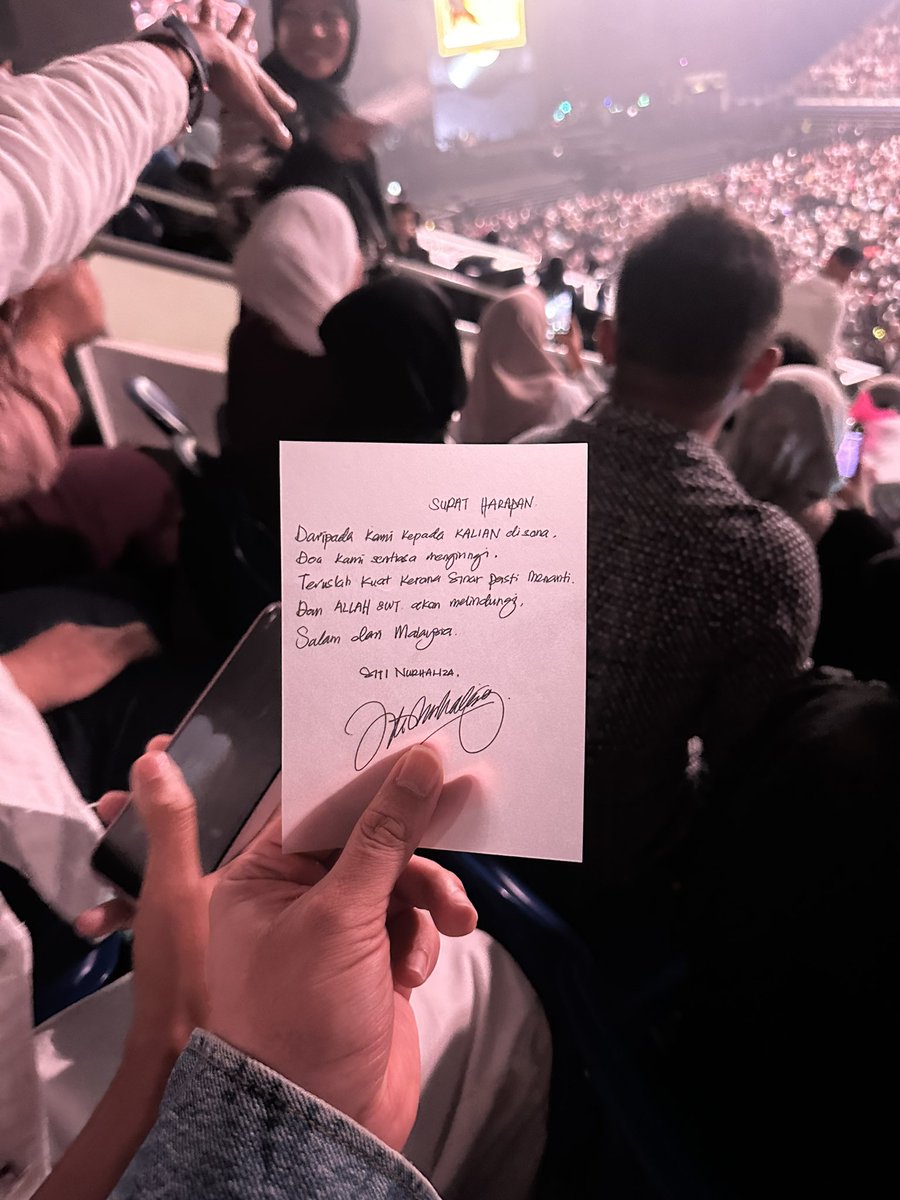 SURAT HARAPAN
Daripada Kami Kepada KALIAN disana.
Doa Kami sentiasa mengiringi.
Teruslah Kuat Kerana Sinar pasti Menanti.
Dan ALLAH SWT. akan melindungi,
Salam dari Malaysia.
SITI NURHALIZA.
Siti Nurhaliza